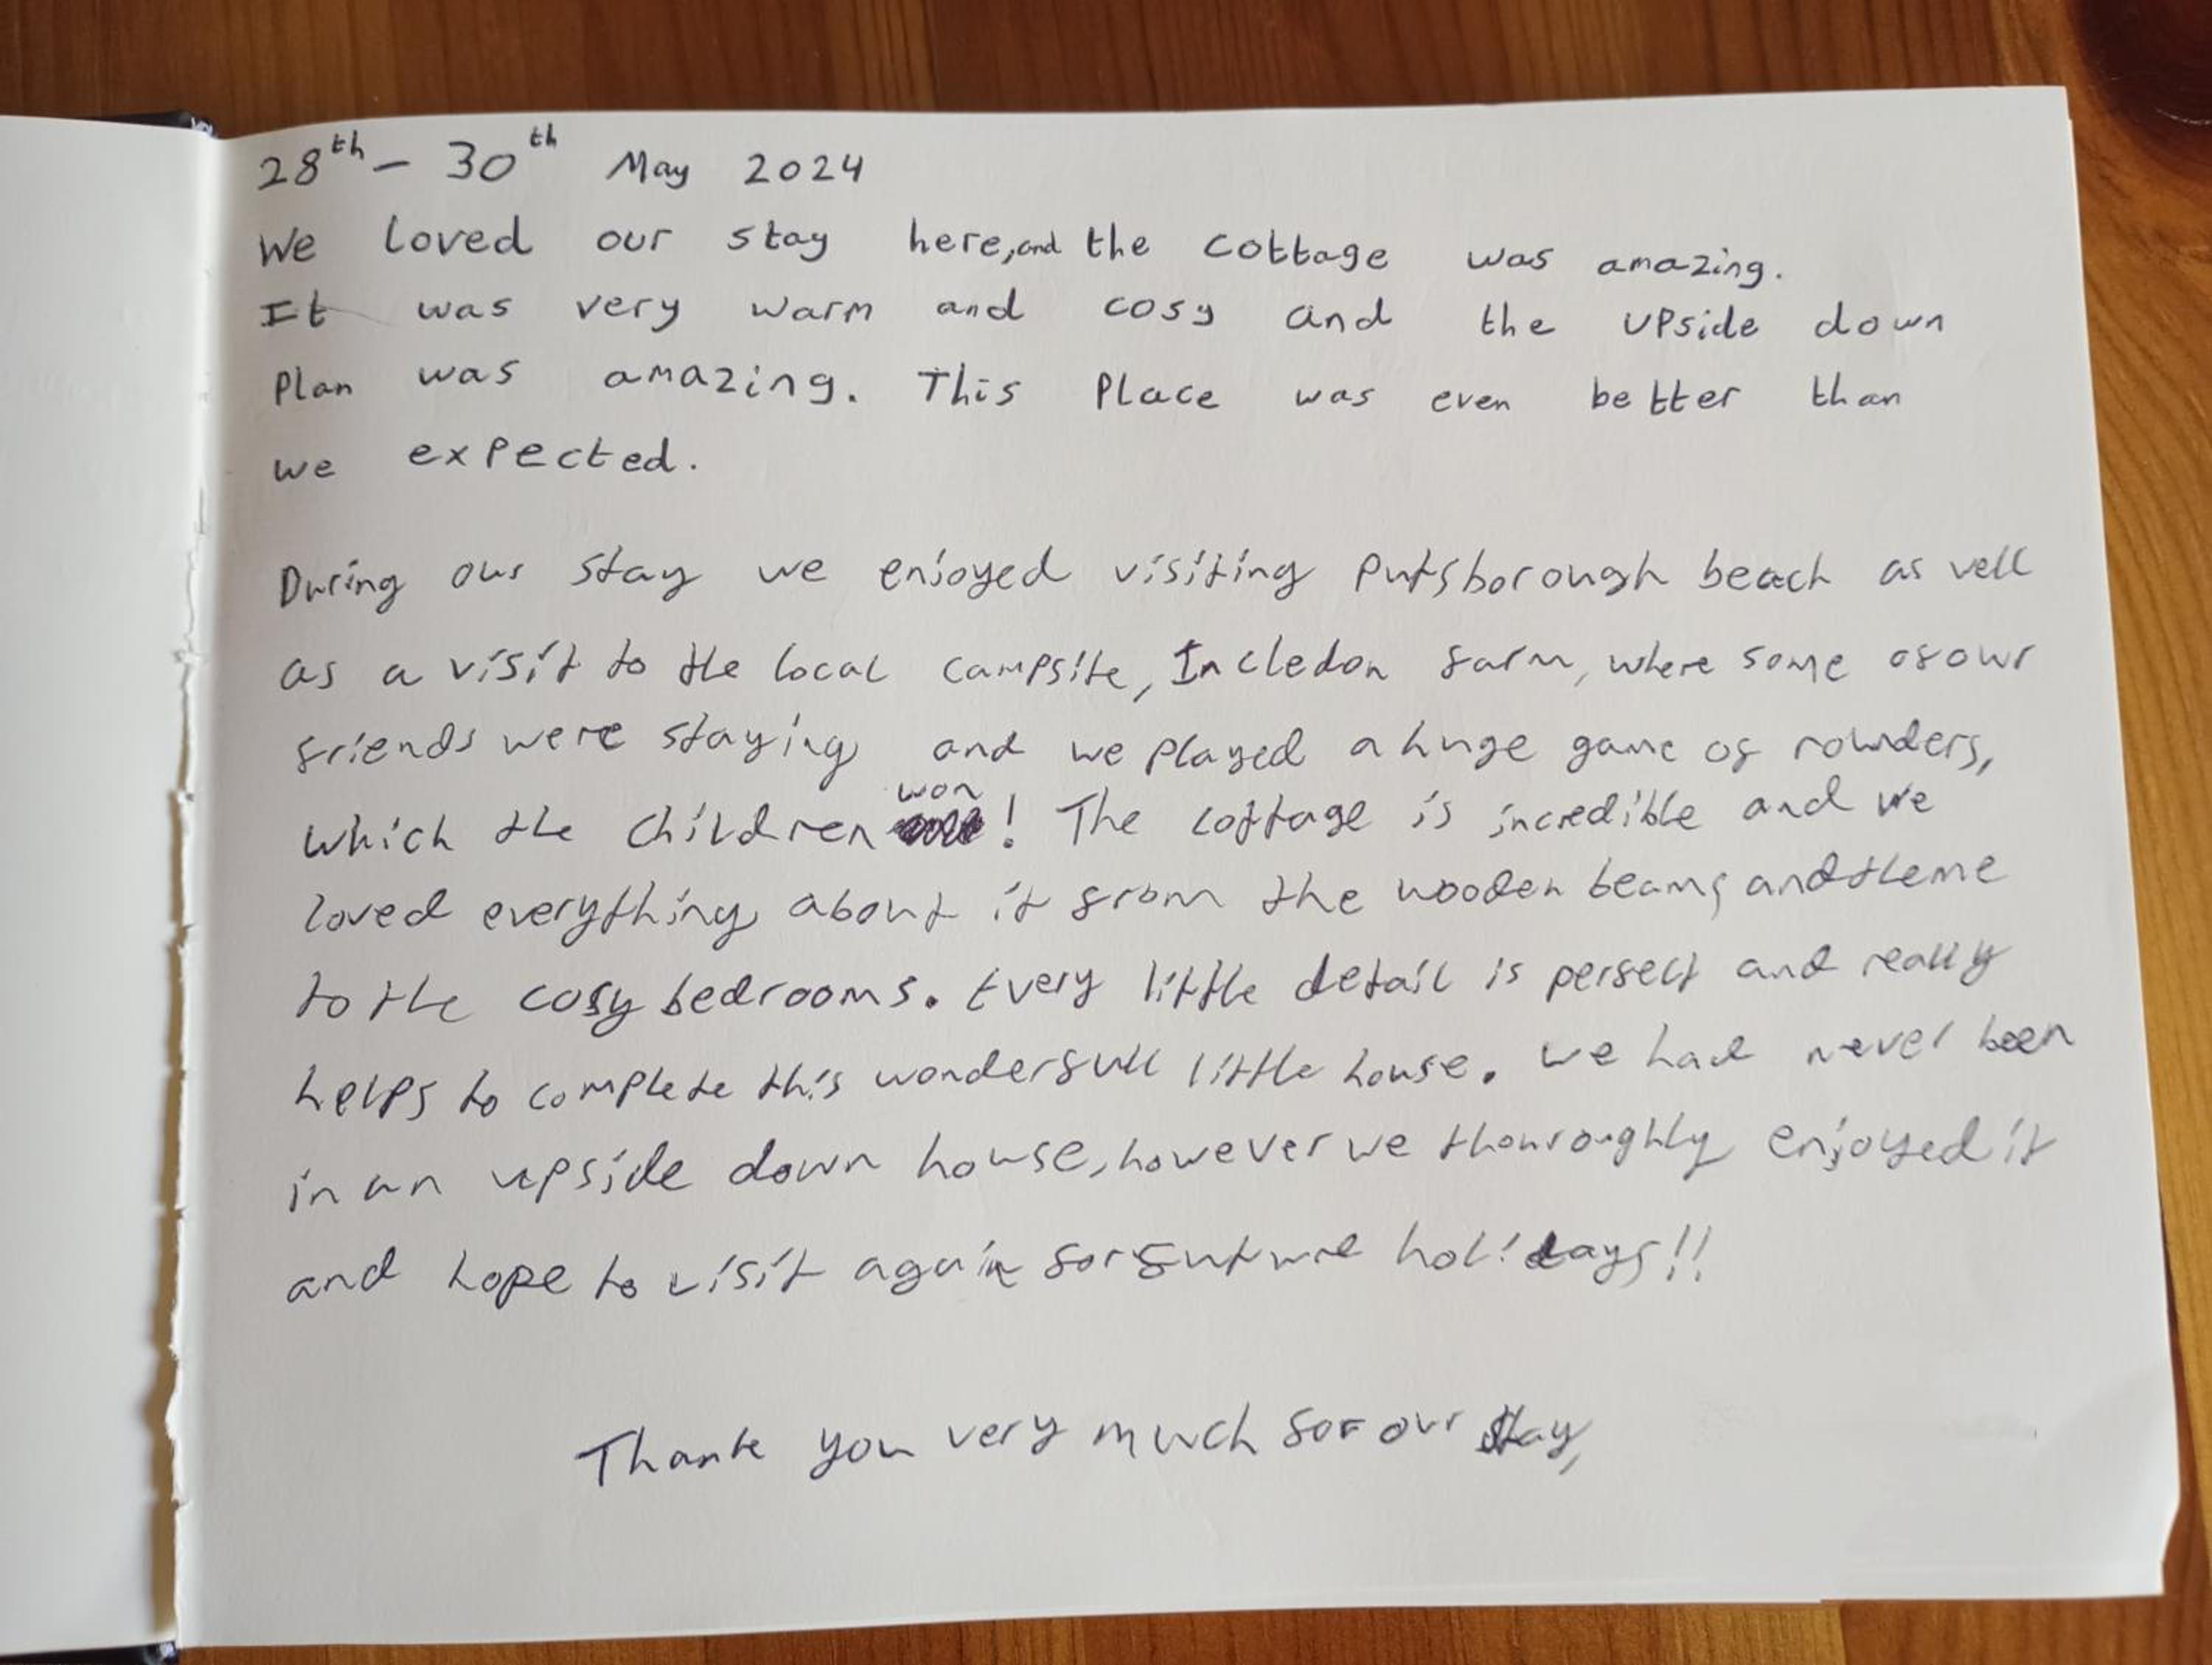 28th - 30th May 2024
We loved our stay here, and the cottage was amazing.
It was very warm and cosy and the upside down
Plan was amazing. This Place was even better than
we expected.
During our stay we enjoyed visiting Putsborough beach as well
as a visit to the local campsite, Incledon farm, where some of our
friends were staying and we played a huge game of rounders,
which the children won! The cottage is incredible and we
loved everything about it from the wooden beams and theme
to the cosy bedrooms. Every little detail is perfect and really
helps to complete this wonderfull little house. We had never been
in an upside down house, however we thouroughly enjoyed it
and hope to visit again for future holidays!!
Thank you very much for our stay,